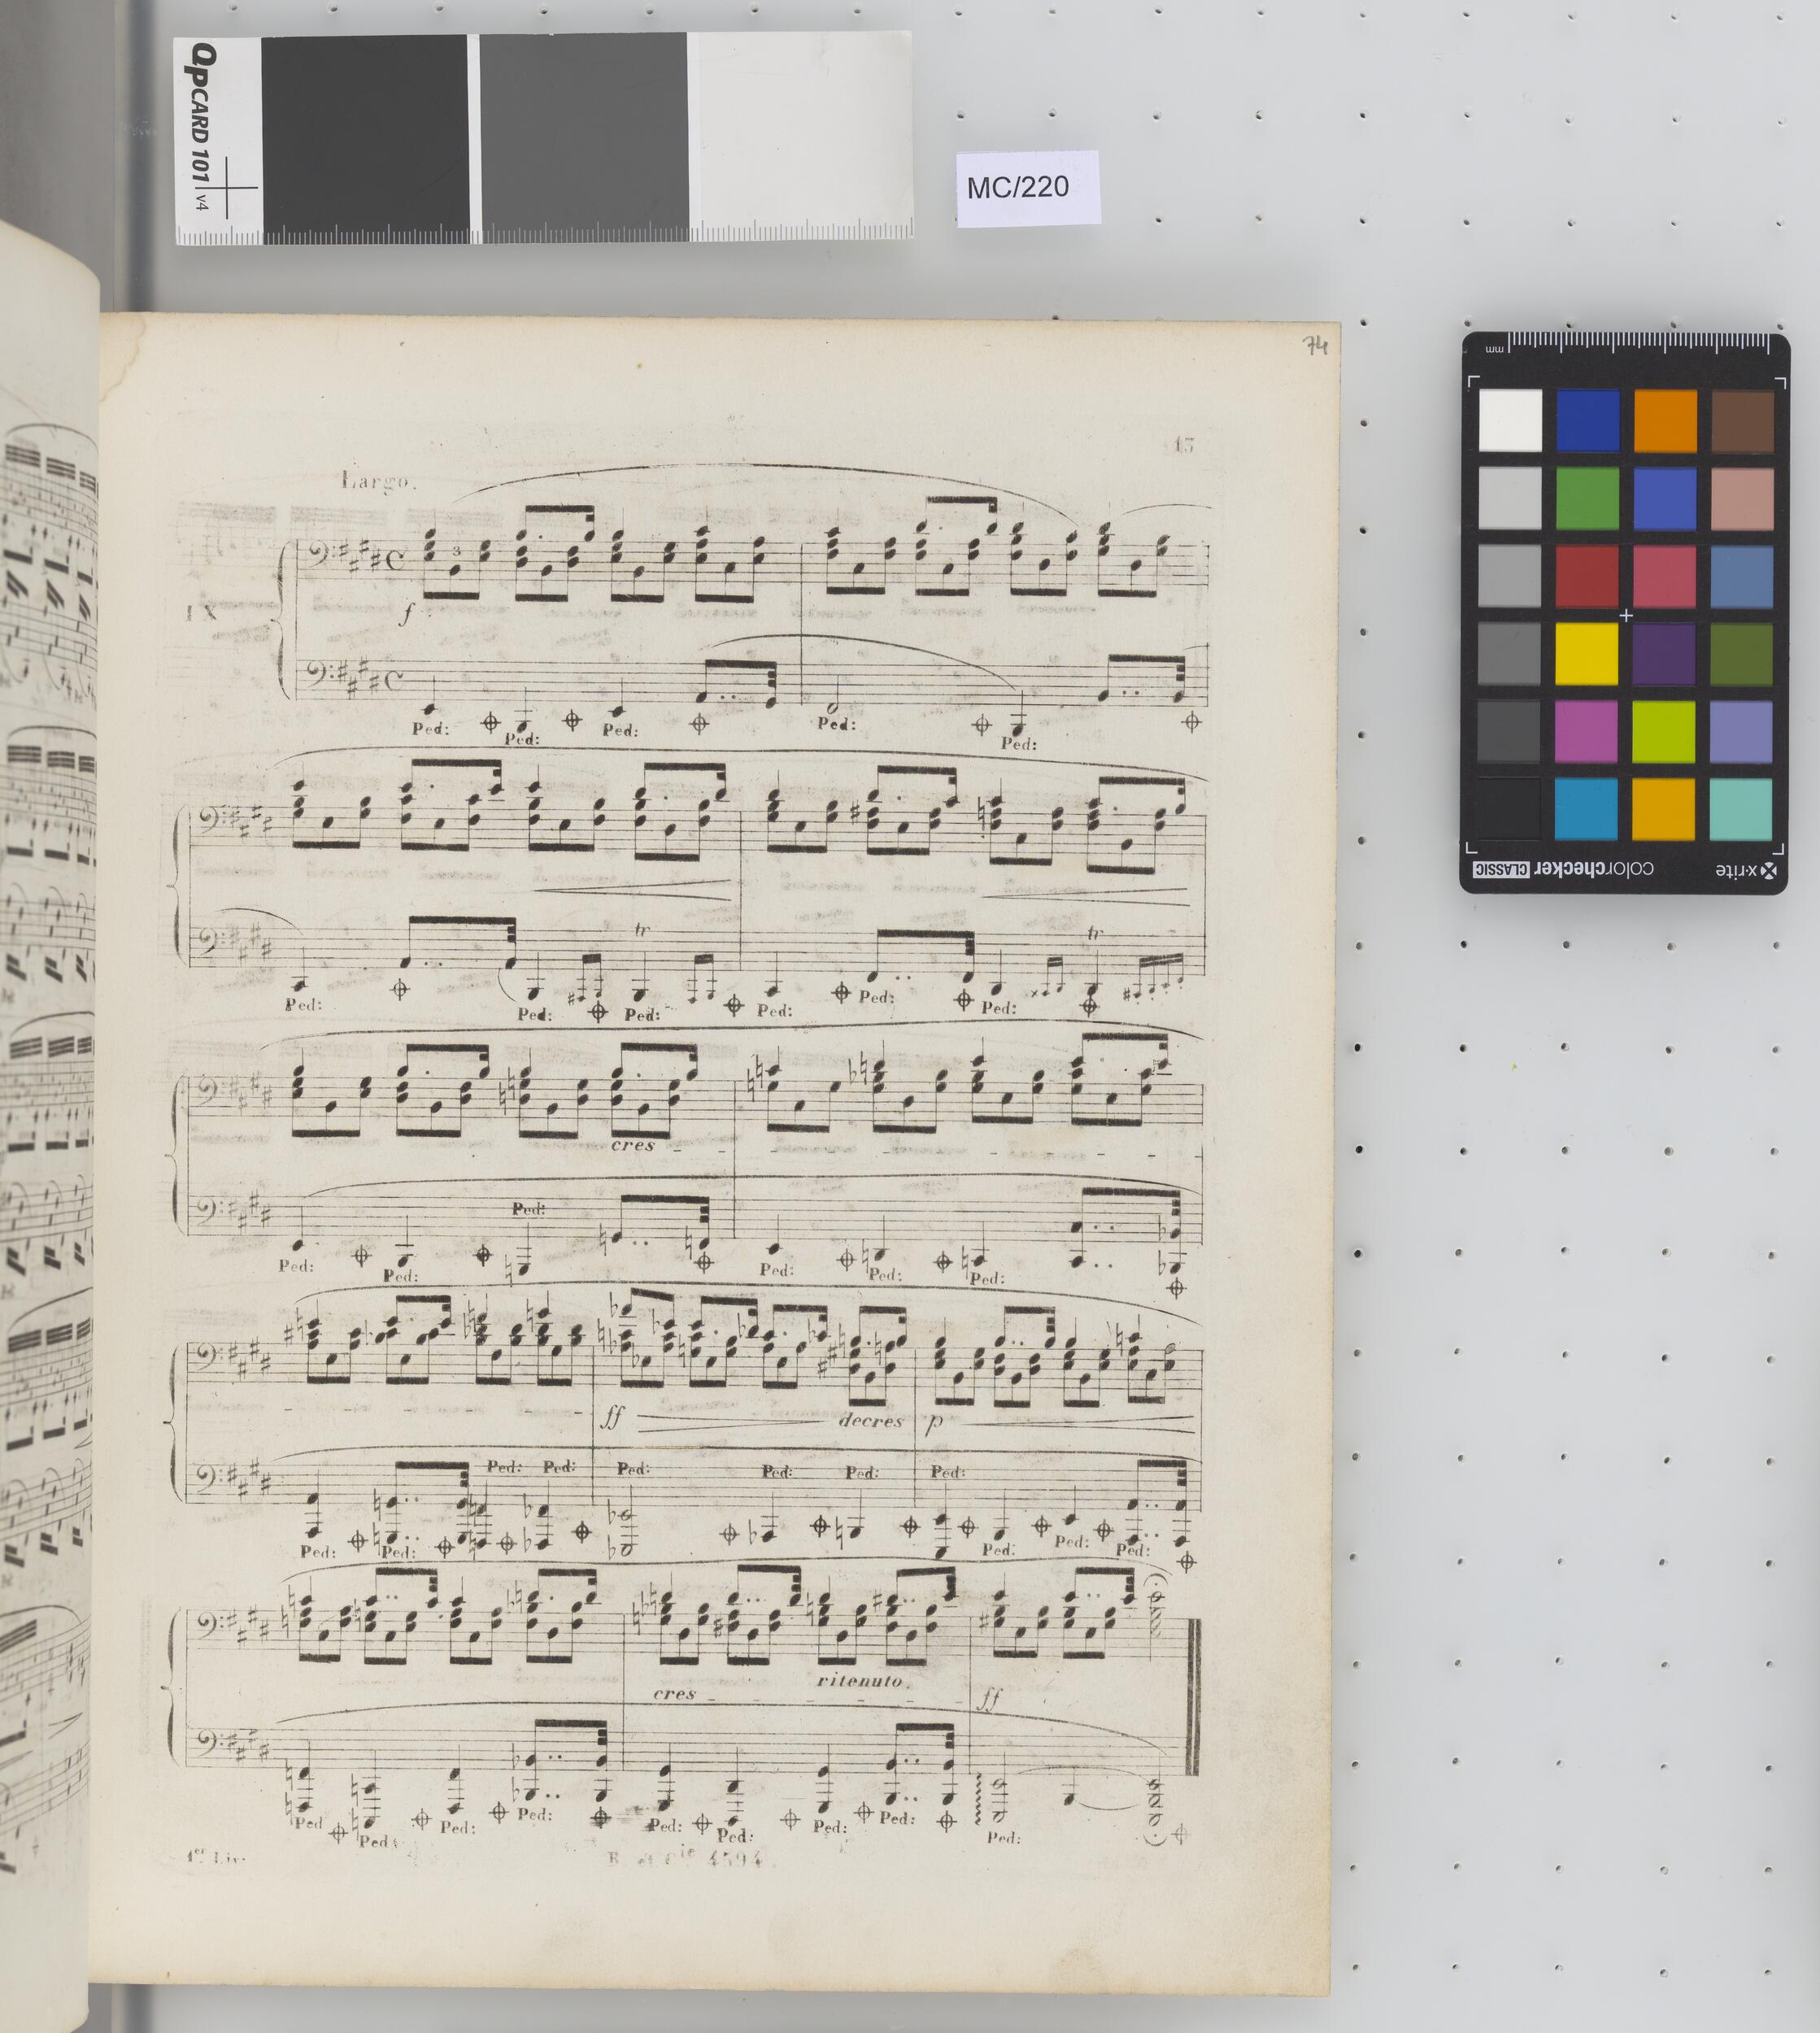 QPCARD 101 v4
MC/220
74
13
Largo.
3
IX
f
Ped: Ped: Ped: Ped: Ped:
tr tr
Ped: Ped: Ped: Ped: Ped: Ped:
cres
Ped:
Ped: Ped: Ped: Ped: Ped:
ff decres p
Ped: Ped: Ped: Ped: Ped: Ped:
Ped: Ped: Ped: Ped: Ped:
cres ritenuto. ff
Ped Ped: Ped: Ped: Ped: Ped: Ped: Ped: Ped:
1er Liv:
B. et Cie 4594.
mm
x-rite
colorchecker CLASSIC